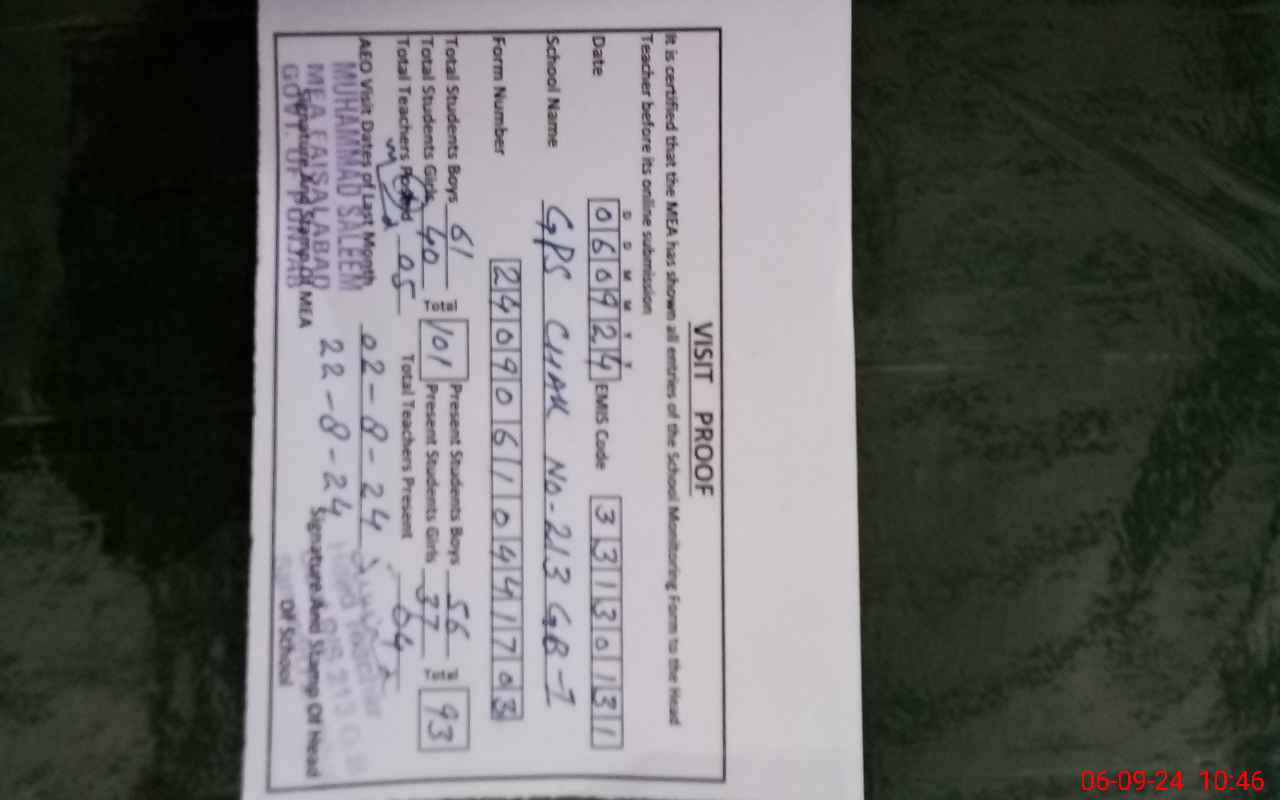 VISIT PROOF
It is certified that the MEA has shown all entries of the School Monitoring Form to the Head
Teacher before its online submission
D D M M Y Y
Date 060924 EMIS Code 33130131
School Name GPS CHAK NO-213 GB-1
Form Number 24090610441703
Total Students Boys 61 Present Students Boys 56
Total Students Girls 40 101 Present Students Girls 37 93
Total Teachers Posted 05 Total Teachers Present 04
AEO Visit Dates of Last Month 02-8-24
22-8-24
MUHAMMAD SALEEM
MEA FAISALABAD
GOVT. OF PUNJAB
Signature And Stamp Of MEA
Signature And Stamp Of Head
Of School
06-09-24 10:46